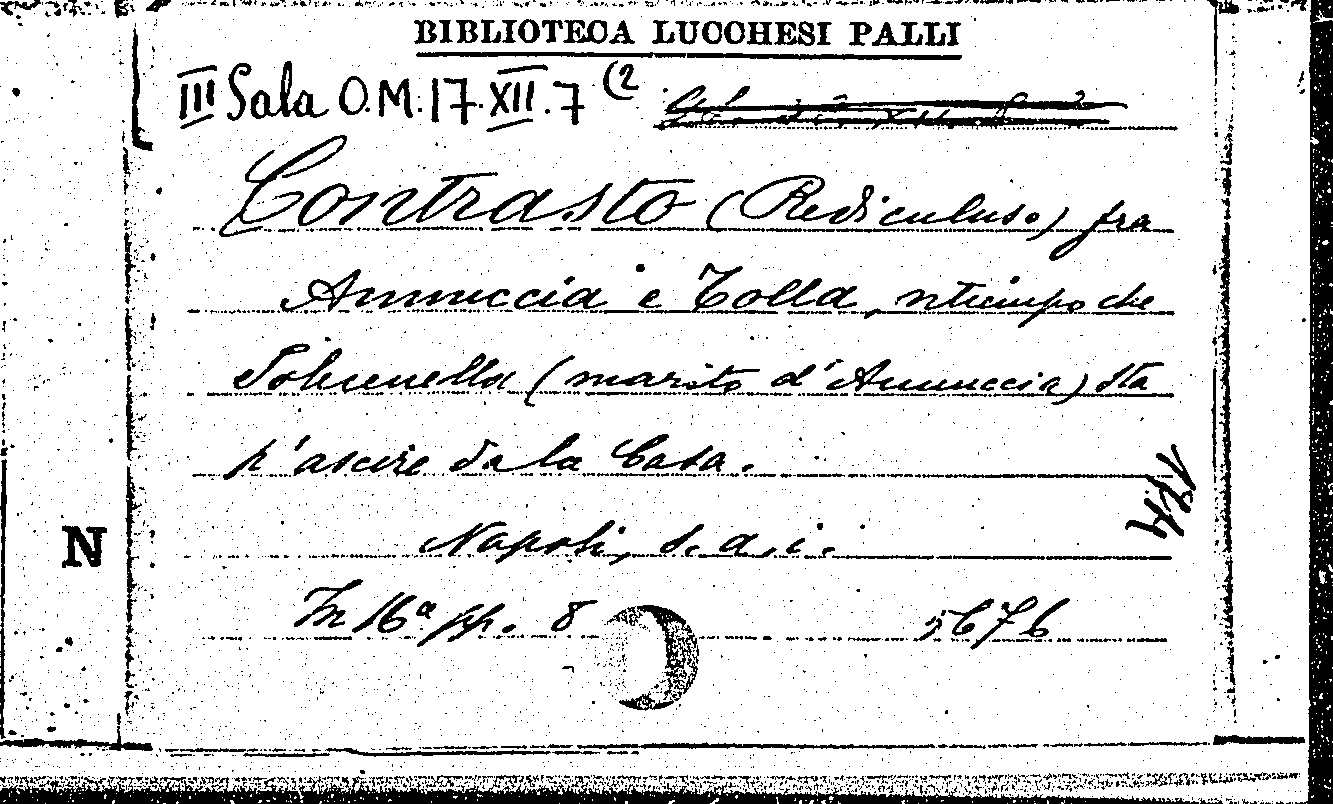 BIBLIOTECA LUCCHESI PALLI
III Sala O.M. 17. XII. 7 (2
Contrasto (Rediculuso) fra
Annuccia e Tolla, ntiempo che
Polecenella (marito d'Annuccia) sta
p'ascire da la Casa.
Napoli, s. a. i.
In 16ª pp. 8 5676
N